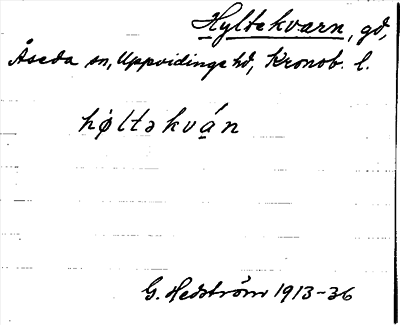 Hyltekvarn, gd,
Åseda sn, Uppvidinge hd, Kronob. l.
hø̀ltəkvá̱n
G. Hedström 1913-36